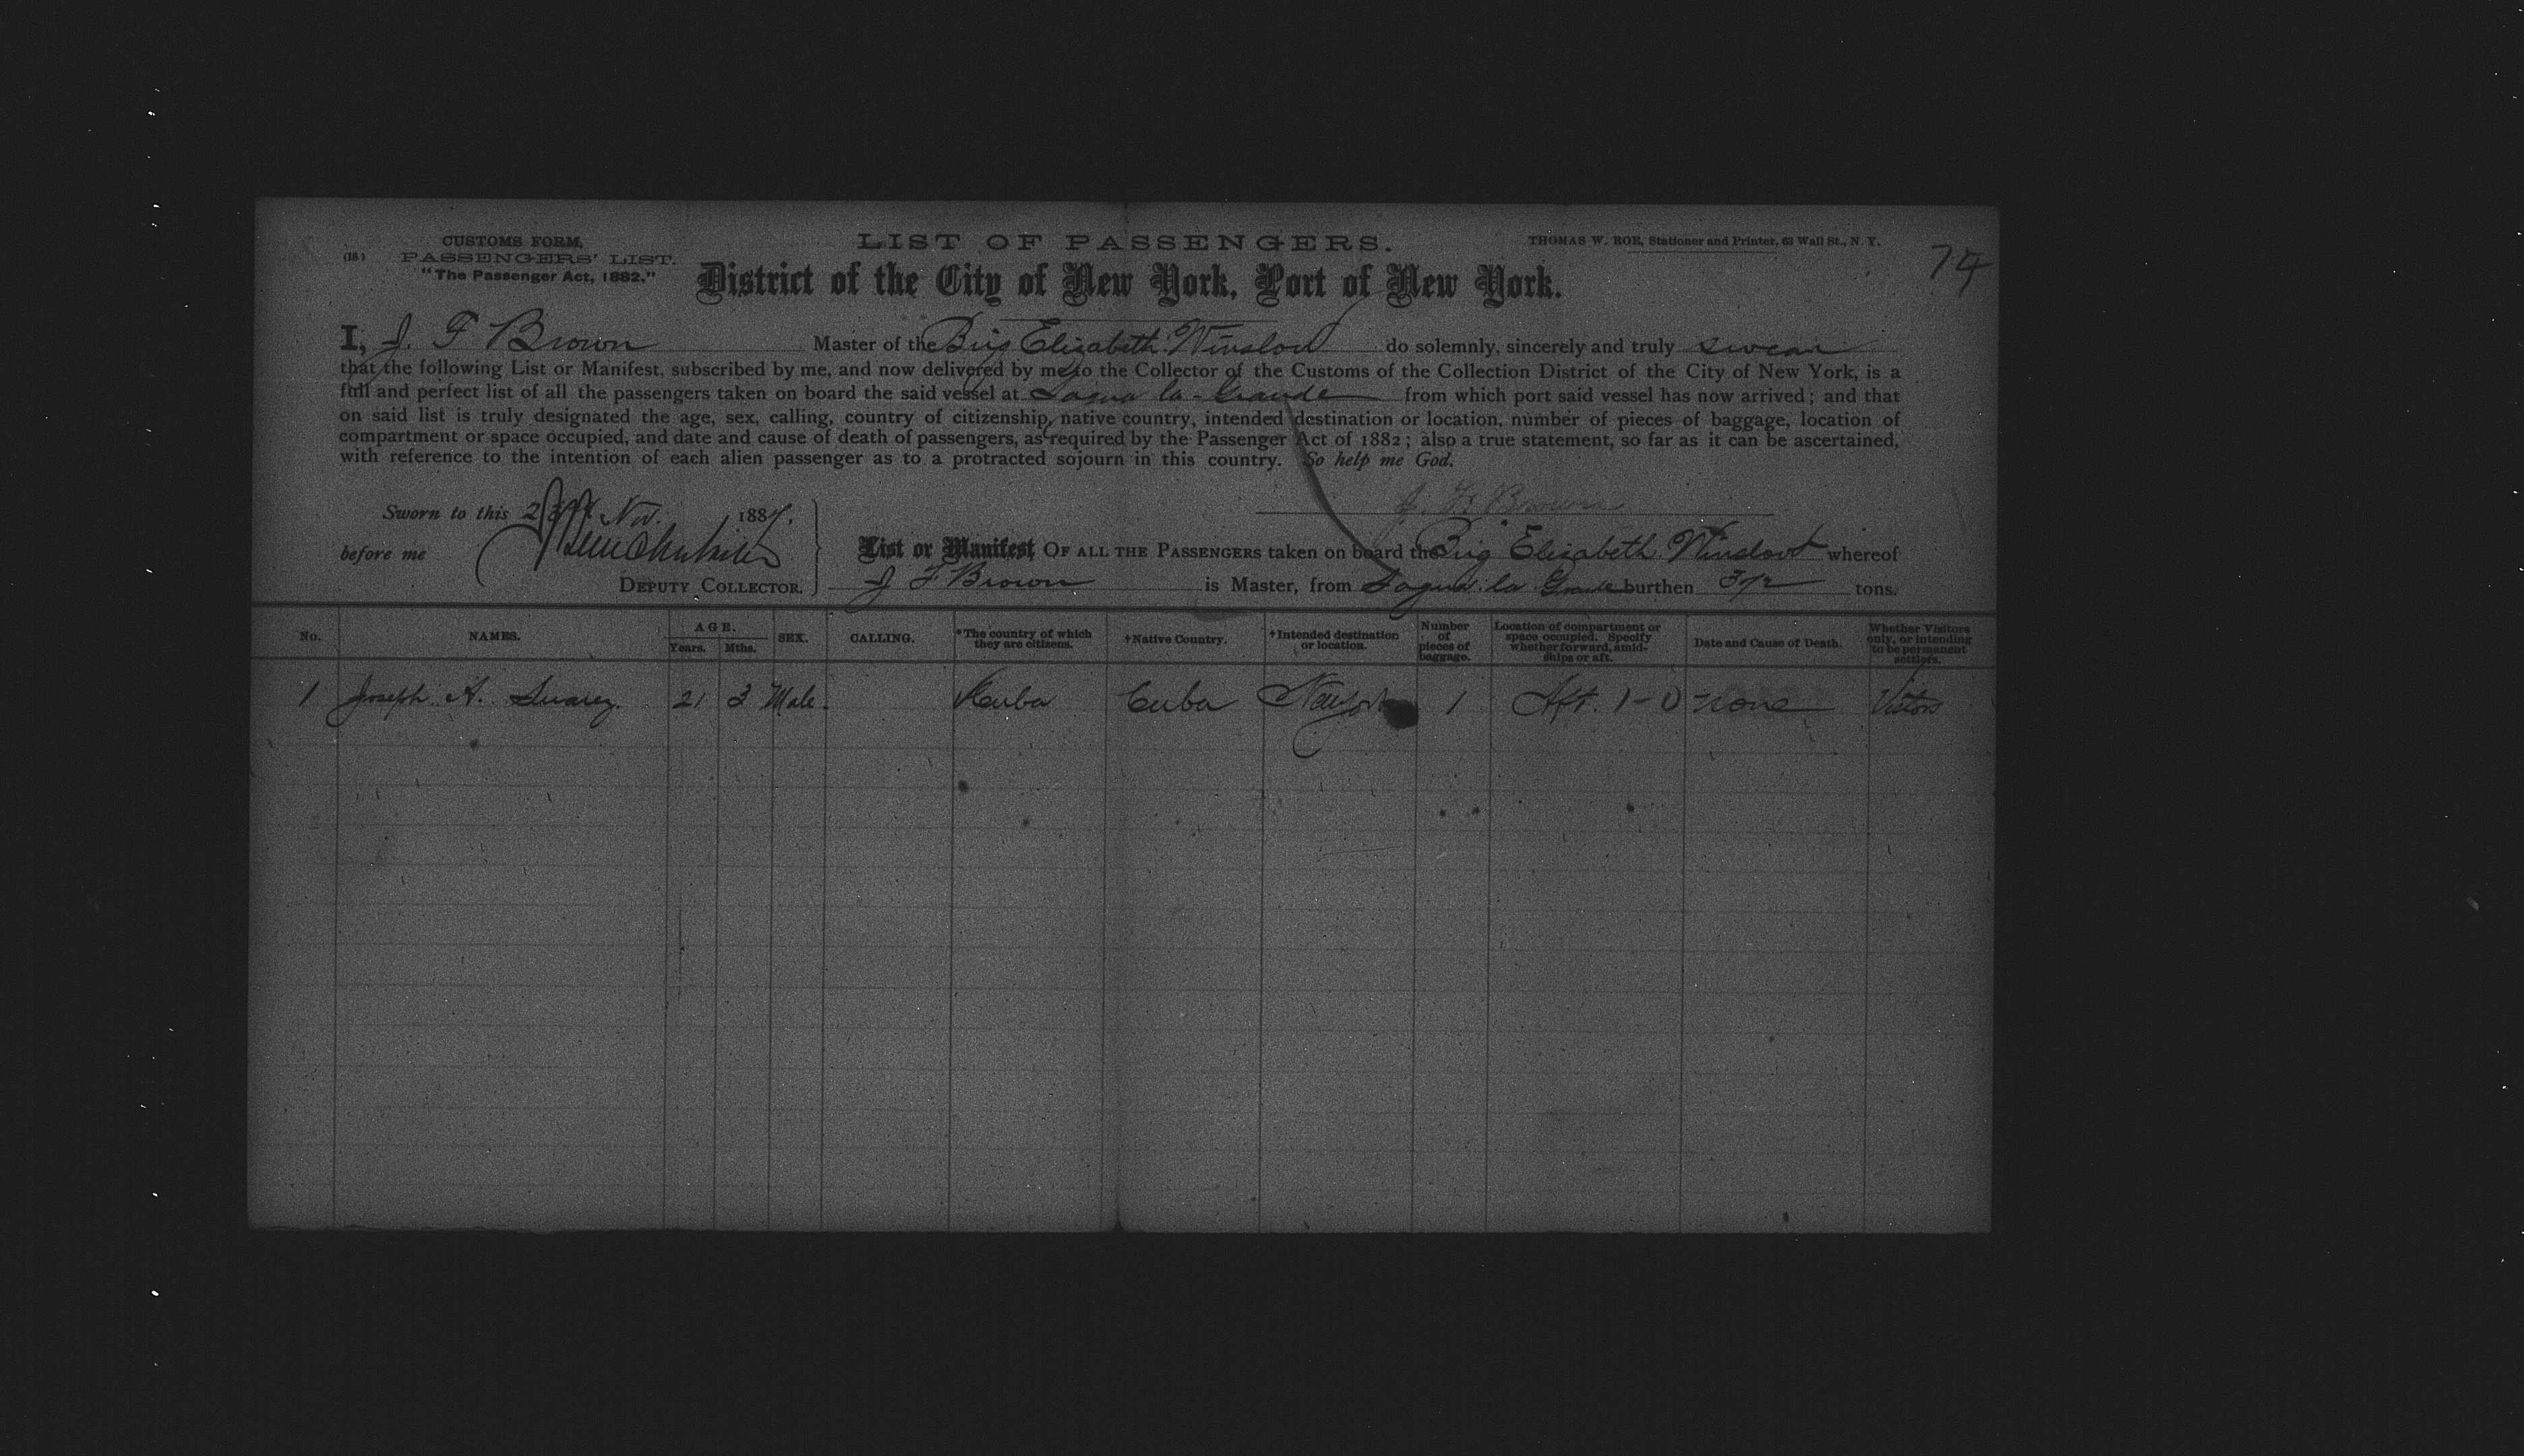 CUSTOMS FORM,
(18) PASSENGERS' LIST.
"The Passenger Act, 1882."
LIST OF PASSENGERS.
THOMAS W. ROE, Stationer and Printer, 63 Wall St., N. Y.
74
District of the City of New York, Port of New York.
I, J. F Brown Master of the Brig Elizabeth Winslow do solemnly, sincerely and truly swear
that the following List or Manifest, subscribed by me, and now delivered by me to the Collector of the Customs of the Collection District of the City of New York, is a
full and perfect list of all the passengers taken on board the said vessel at Sagua la Grande from which port said vessel has now arrived; and that
on said list is truly designated the age, sex, calling, country of citizenship, native country, intended destination or location, number of pieces of baggage, location of
compartment or space occupied, and date and cause of death of passengers, as required by the Passenger Act of 1882; also a true statement, so far as it can be ascertained,
with reference to the intention of each alien passenger as to a protracted sojourn in this country. So help me God.
Sworn to this Nov. 1887.
J. F. Brown
before me
DEPUTY COLLECTOR.
List or Manifest OF ALL THE PASSENGERS taken on board the Brig Elizabeth Winslow whereof
J F Brown is Master, from Sagua la Grande burthen 372 tons.
No. NAMES. AGE. Years. Mths. SEX. CALLING. *The country of which they are citizens. †Native Country. †Intended destination or location. Number of pieces of baggage. Location of compartment or space occupied. Specify whether forward, amidships or aft. Date and Cause of Death. Whether Visitors only, or intending to be permanent settlers.
1 Joseph A. Suarez. 21 3 Male. Cuba Cuba New York 1 Aft. 1-0 none Vistors